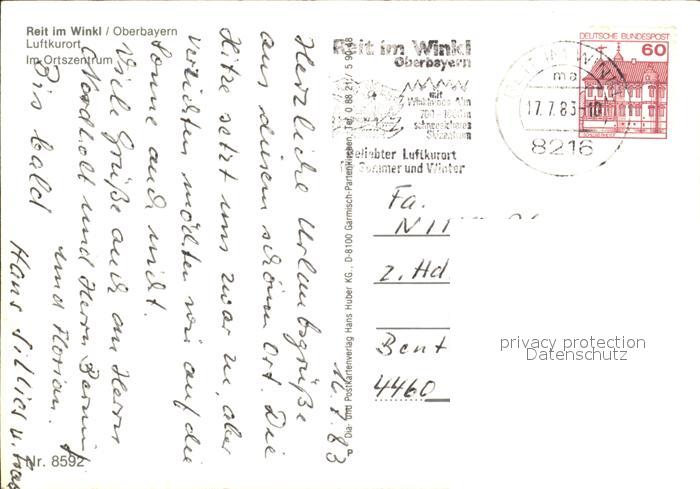 Reit im Winkl / Oberbayern
Luftkurort
Im Ortszentrum
Nr. 8592
16.7.83
Herzliche Urlaubsgrüße
aus diesem schönen Ort. Die
Hitze setzt uns zwar zu, aber
verzichten möchten wir auf die
Sonne auch nicht.
Viele Grüße auch an Herrn
Nordholt und Herrn
Bis bald und Florian.
Hans Sillies u. Frau
Dia- und Postkartenverlag Hans Huber KG., D-8100 Garmisch-Partenkirchen, Tel. 0 88 21 / 5
Reit im Winkl
Oberbayern
mit
Winklmoos Alm
700 - 1800m
schneesicheres
Skizentrum
beliebter Luftkurort
Sommer und Winter
17.7.83-10
8216
DEUTSCHE BUNDESPOST
60
Fa.
z. Hd.
Bent
4460
privacy protection
Datenschutz